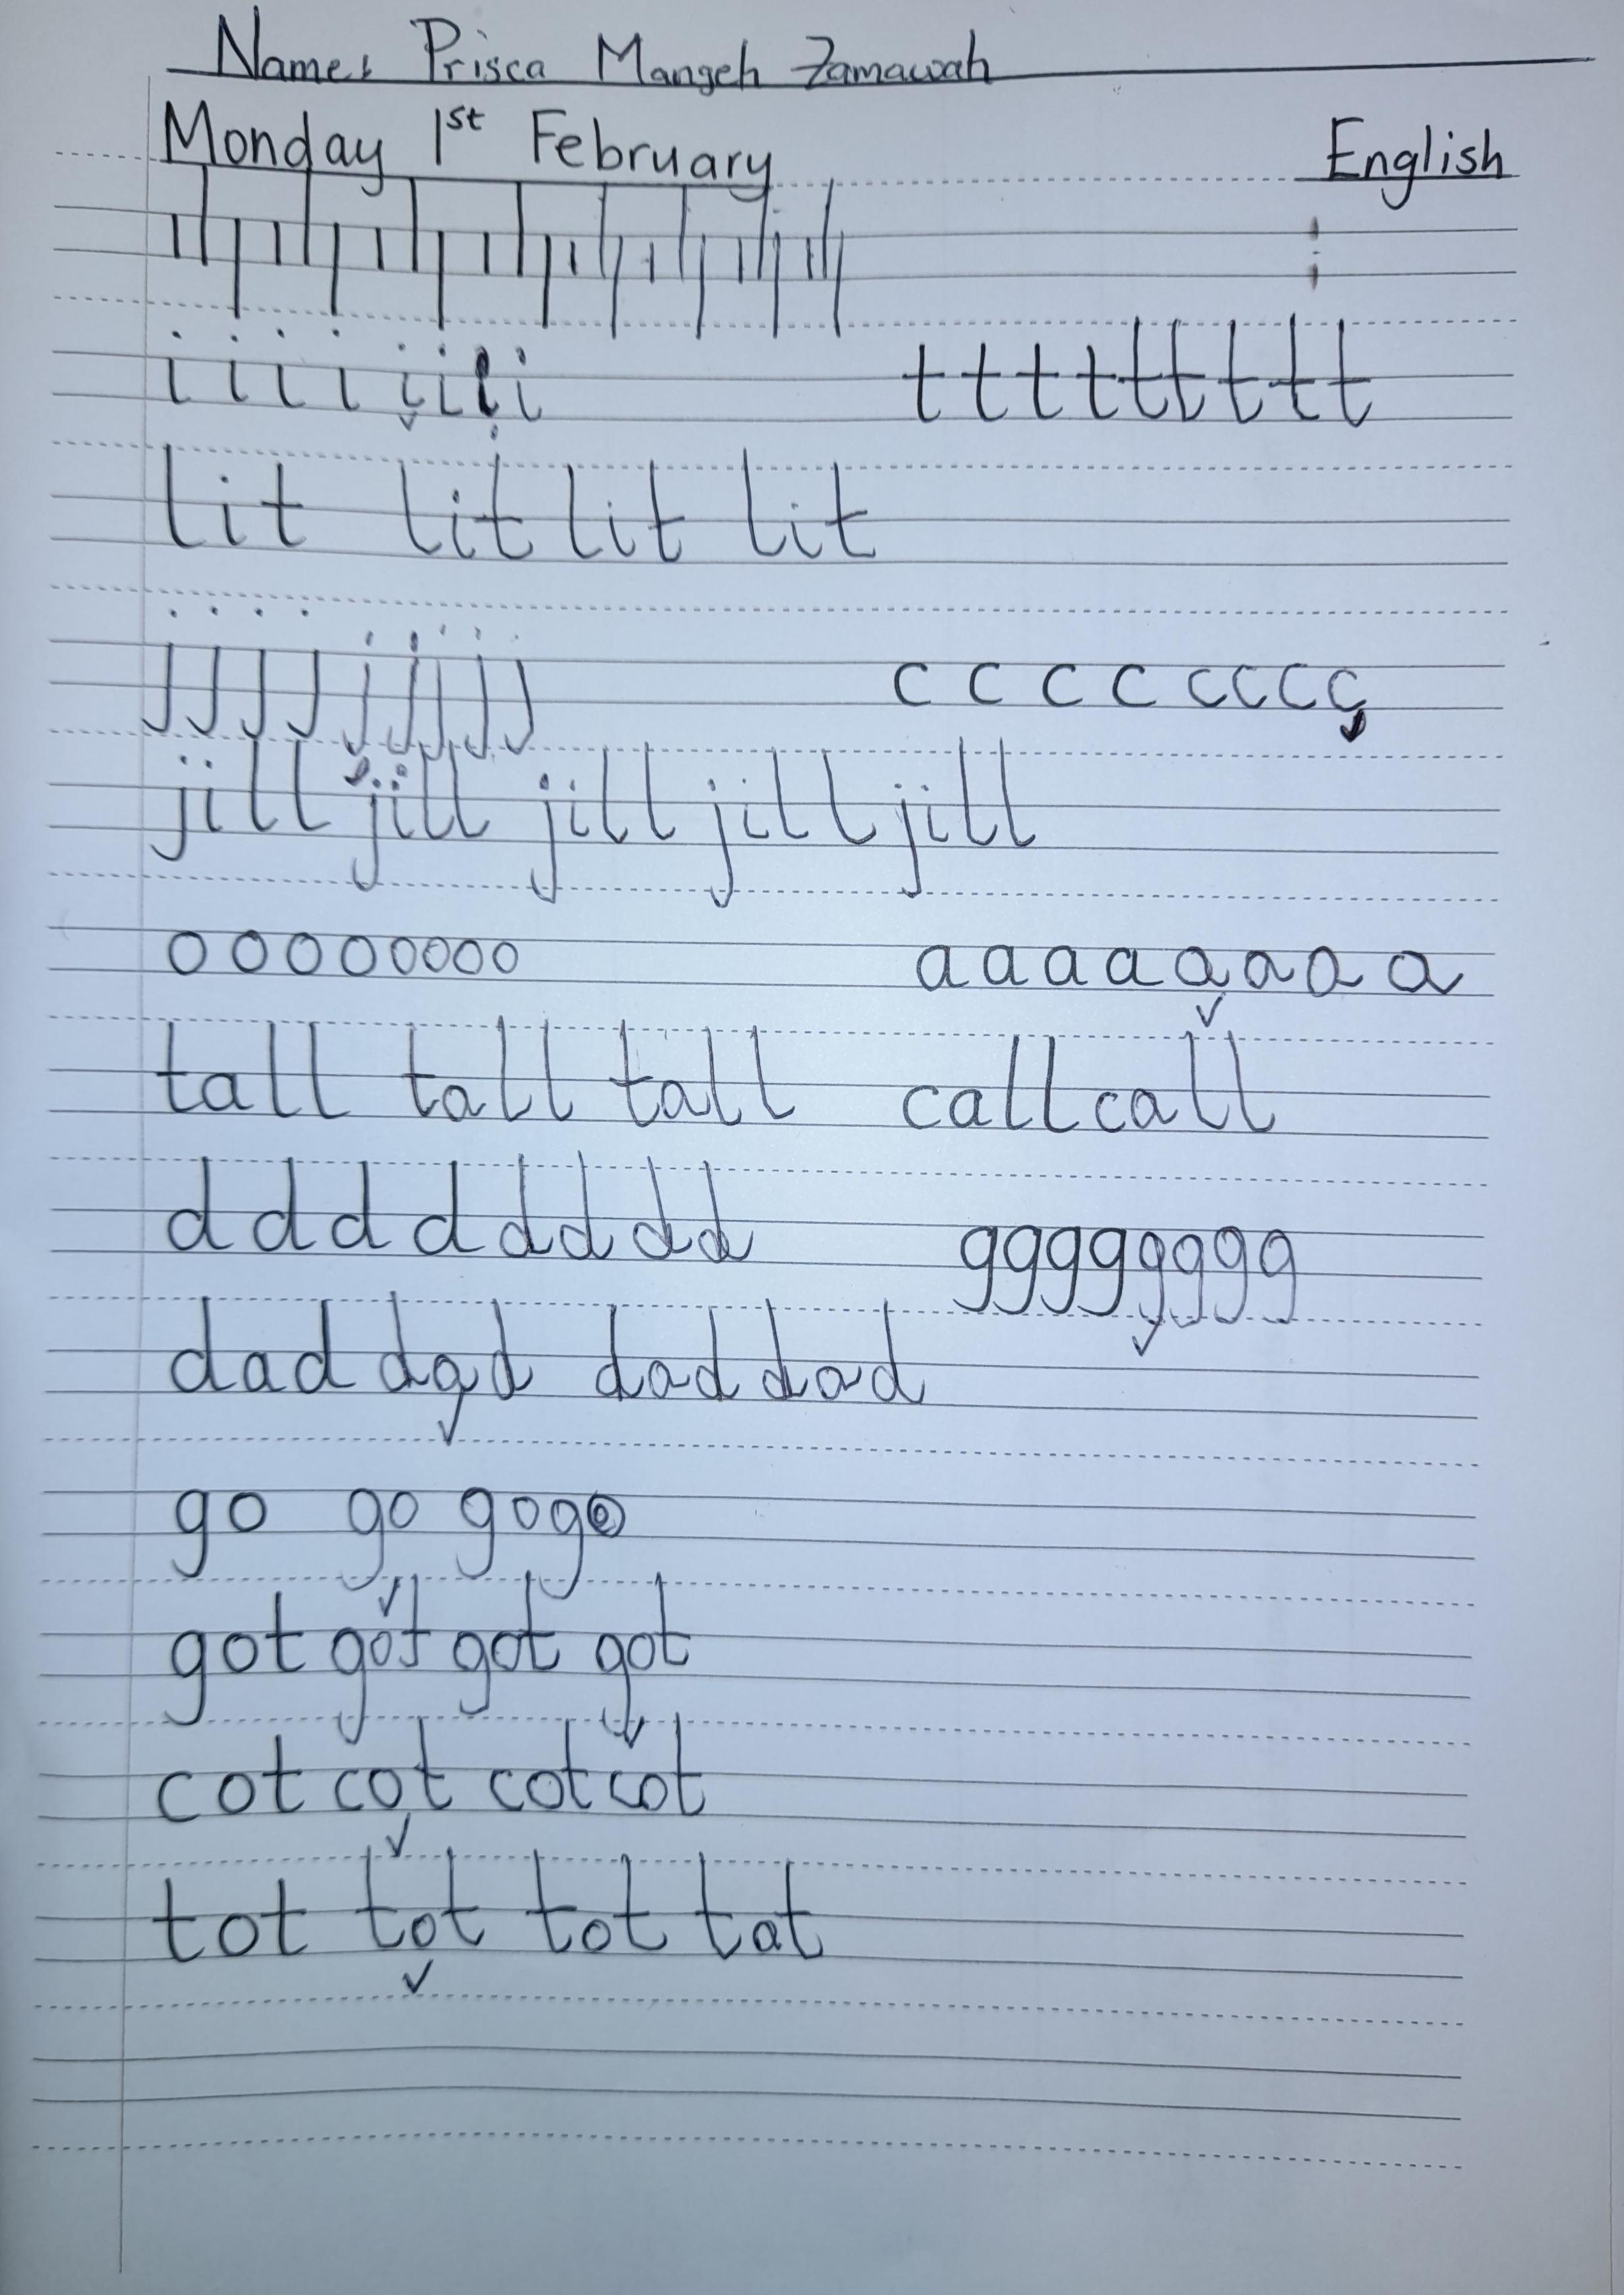 Name: Prisca Mangeh Zamawah
Monday 1st February English
i i i i i i i i t t t t t t t t t
lit lit lit lit
j j j j j j j j j c c c c c c c c
jill jill jill jill jill
o o o o o o o o a a a a a a a a
tall tall tall call call
d d d d d d d d g g g g g g g g
dad dad dad dad
go go go go
got got got got
cot cot cot cot
tot tot tot tot